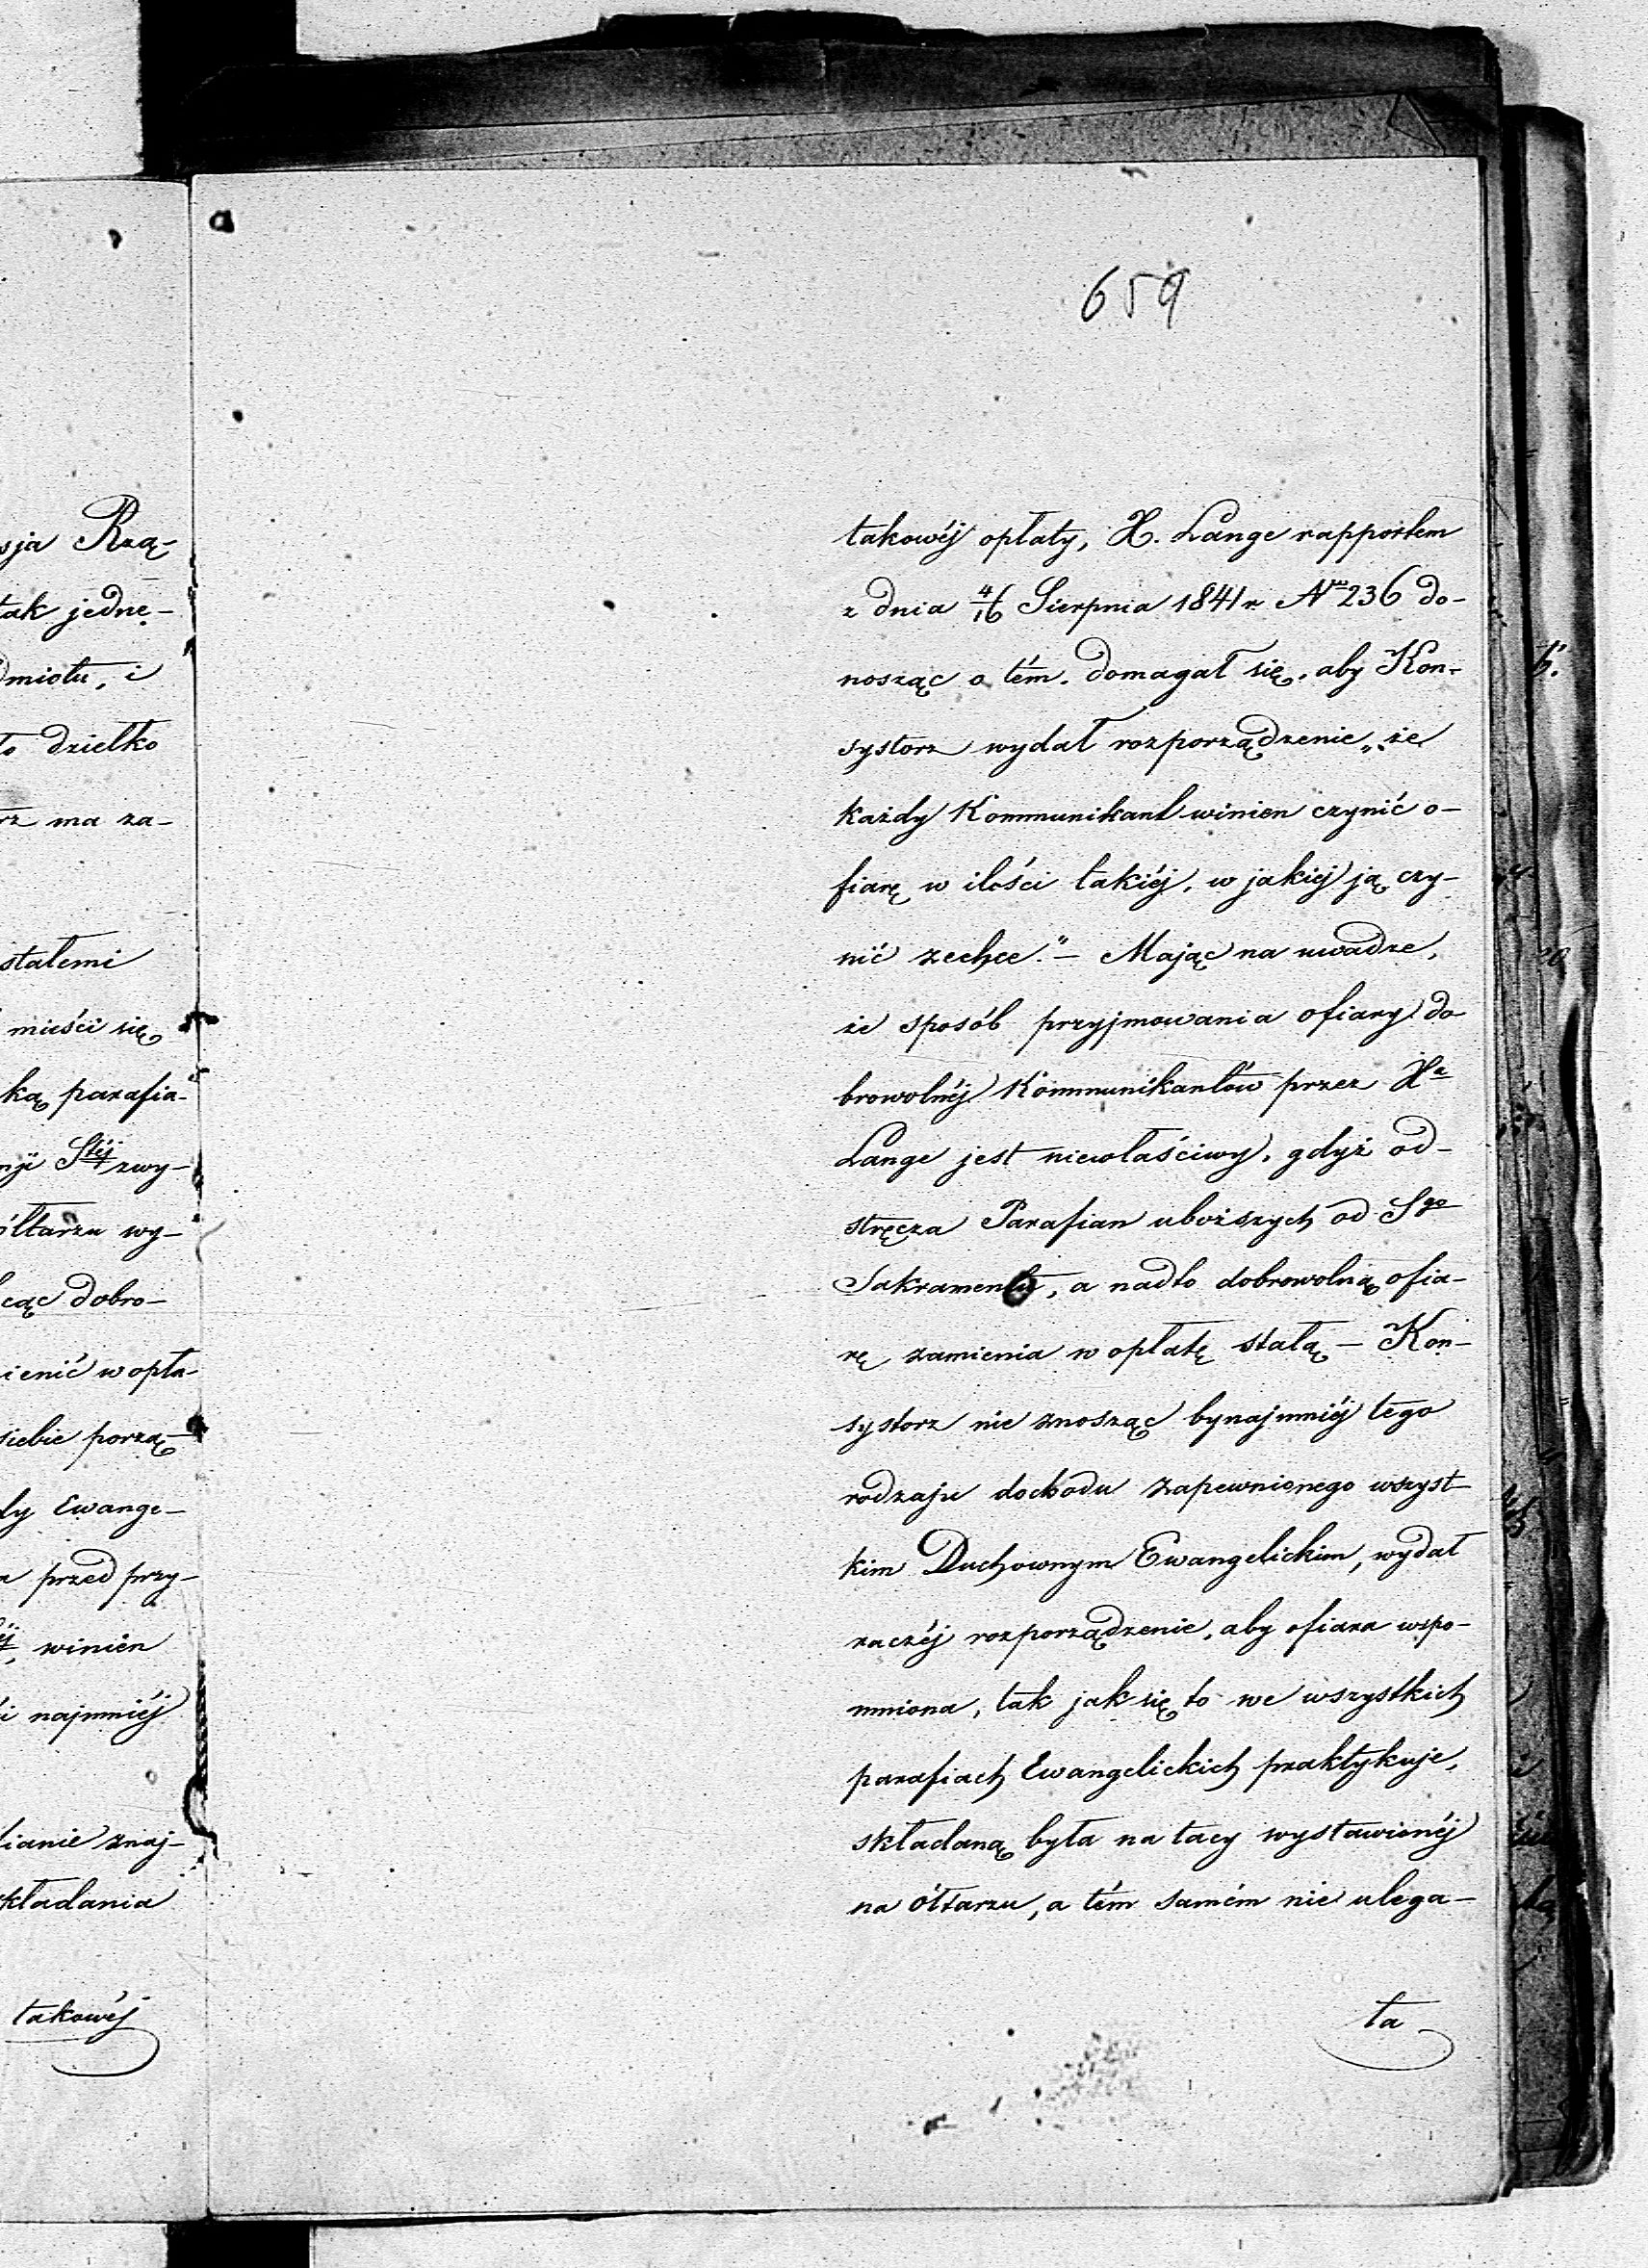 sja Rzą-
tak jedne-
dmiotu, i
to dziełko
rz ma za-
stałemi
mieści się
ką parafia-
nji Stéj zwy-
ółtarzu wy-
cąc dobro-
ienić w opła-
siebie porzą-
ly Ewange-
przed przy-
winien
i najmniéj
ianie znaj-
kładania
takowéj
659
takowéj opłaty, X. Lange rapportem
z dnia 4/16 Sierpnia 1841 r. Nro 236 do-
nosząc o tém, domagał się, aby Kon-
systorz wydał rozporządzenie „że
każdy Kommunikant winien czynić o-
fiarę w ilości takiéj, w jakiéj ją czy-
nić zechce." — Mając na uwadze,
że sposób przyjmowania ofiary do-
browolnéj Kommunikantów przez Xa
Lange jest niewłaściwy, gdyż od-
stręcza Parafian uboższych od Sgo
Sakramentu, a nadto dobrowolną ofia-
rę zamienia w opłatę stałą — Kon-
systorz nie znosząc bynajmniéj tego
rodzaju dochodu zapewnionego wszyst-
kim Duchownym Ewangelickim, wydał
raczéj rozporządzenie, aby ofiara wspo-
mniona, tak jak się to we wszystkich
parafiach Ewangelickich praktykuje,
składaną była na tacy wystawionéj
na ółtarzu, a tém samém nie ulega-
ła